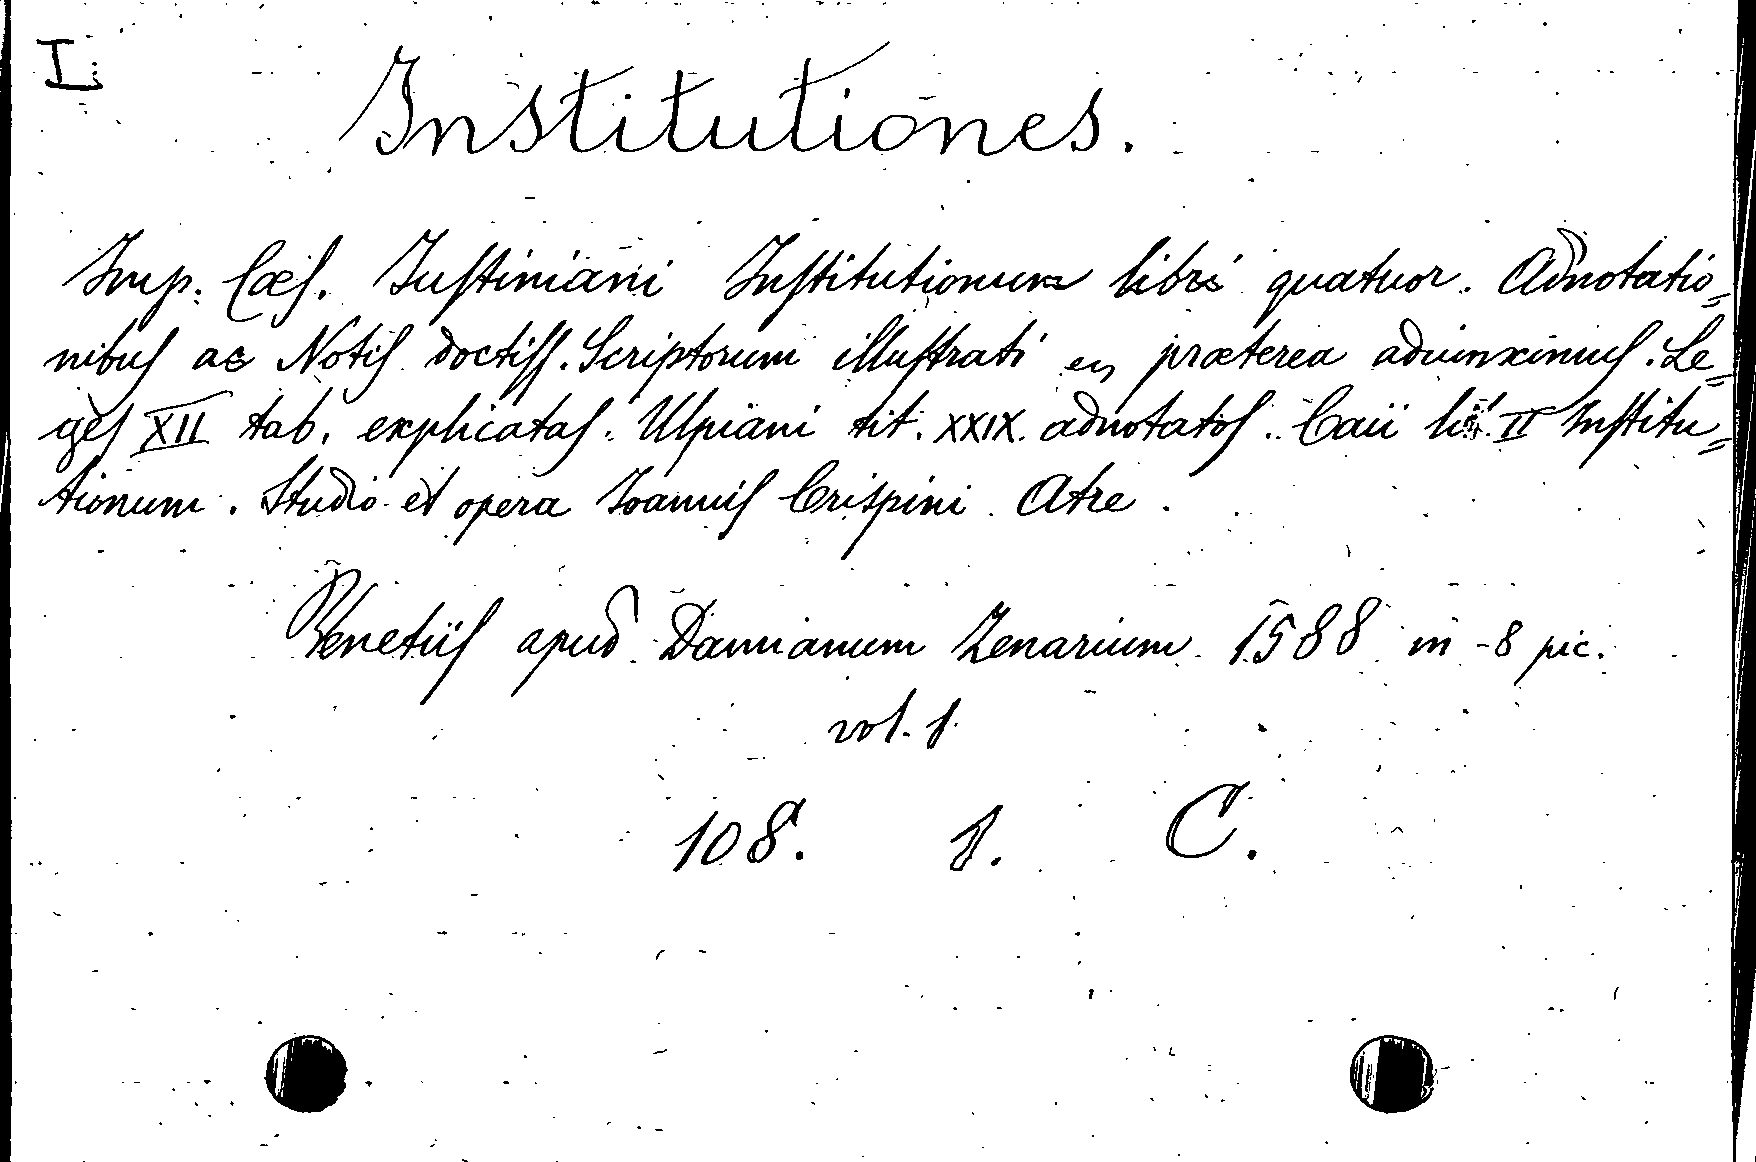 I.
Institutiones.
Imp. Cæs. Justiniani Institutionum libri quatuor. Adnotatio=
nibus ac Notis doctiss. Scriptorum illustrati en præterea adiunximus. Le=
ges XII tab. explicatas. Ulpiani tit. XXIX. adnotatos. Caii II Institu=
tionum. Studio et opera Joannis Crispini Atre.
Venetiis apud Damianum Zenarium 1588 in-8 pic.
vol. 1.
108. 1. C.